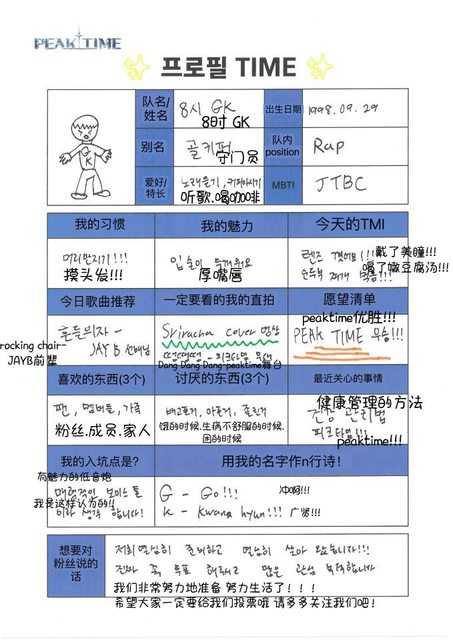 PEAK TIME
프로필 TIME
队名/姓名
8시 GK
8时 GK
出生日期
1998.09.29
别名
골키퍼
守门员
队内position
Rap
爱好/特长
노래듣기, 커피마시기
听歌.喝咖啡
MBTI
JTBC
我的习惯
我的魅力
今天的TMI
머리만지기!!!
摸头发!!!
입술이 두꺼워요
厚嘴唇
렌즈 꼈어요!!!
戴了美瞳!!!
순두부찌개 먹음!!!
喝了嫩豆腐汤!!!
今日歌曲推荐
一定要看的我的直拍
愿望清单
흔들의자 -
JAY B 선배님
rocking chair-
JAYB前辈
Sriracha cover 영상
떵떵떵 - 피크타임 무대
Dang Dang Dang-peaktime舞台
peaktime优胜!!!
PEAK TIME 우승!!!
喜欢的东西(3个)
讨厌的东西(3个)
最近关心的事情
팬, 멤버들, 가족
粉丝.成员.家人
배고프기, 아프기, 졸린거
饿的时候.生病不舒服的时候.
困的时候
健康管理的方法
건강 관리법
피크타임!!!
peaktime!!!
我的入坑点是?
用我的名字作n行诗!
有魅力的低音炮
매력적인 보이스 톤
我是这样认为的!!
이라 생각 합니다!
G - Go!!!
冲啊!!!
K - Kwang hyun!!!
广贤!!!
想要对
粉丝说的
话
저희 열심히 준비하고 열심히 살아 왔습니다!!!
진짜 꼭 투표 해주시고 많은 관심 부탁합니다
我们非常努力地准备 努力生活了！！！
希望大家一定要给我们投票哦 请多多关注我们吧！